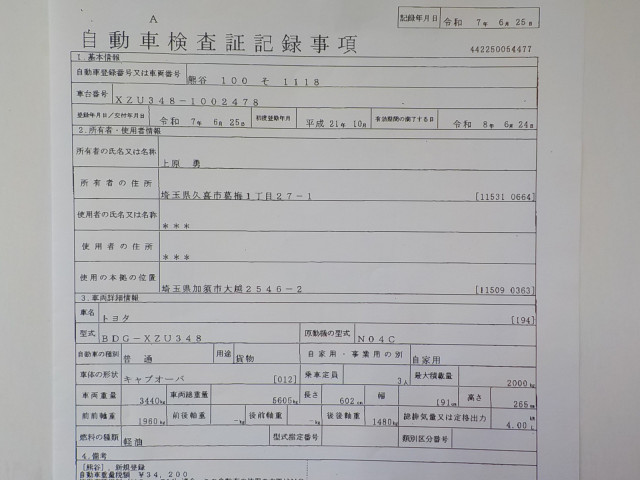 A
記録年月日 令和 7年 6月 25日
自動車検査証記録事項
442250054477
1.基本情報
自動車登録番号又は車両番号 熊谷 100 そ 1118
車台番号 XZU348-1002478
登録年月日/交付年月日 令和 7年 6月 25日 初度登録年月 平成 21年 10月 有効期間の満了する日 令和 8年 6月 24日
2.所有者・使用者情報
所有者の氏名又は名称 上原 勇
所有者の住所 埼玉県久喜市葛梅1丁目27-1 [11531 0664]
使用者の氏名又は名称 ***
使用者の住所 ***
使用の本拠の位置 埼玉県加須市大越2546-2 [11509 0363]
3.車両詳細情報
車名 トヨタ [194]
型式 BDG-XZU348 原動機の型式 N04C
自動車の種別 普通 用途 貨物 自家用・事業用の別 自家用
車体の形状 キャブオーバ [012] 乗車定員 3人 最大積載量 2000kg
車両重量 3440kg 車両総重量 5605kg 長さ 602cm 幅 191cm 高さ 265cm
前前軸重 1960kg 前後軸重 -kg 後前軸重 -kg 後後軸重 1480kg 総排気量又は定格出力 4.00L
燃料の種類 軽油 型式指定番号 類別区分番号
4.備考
[熊谷],新規登録
自動車重量税額 ¥34,200